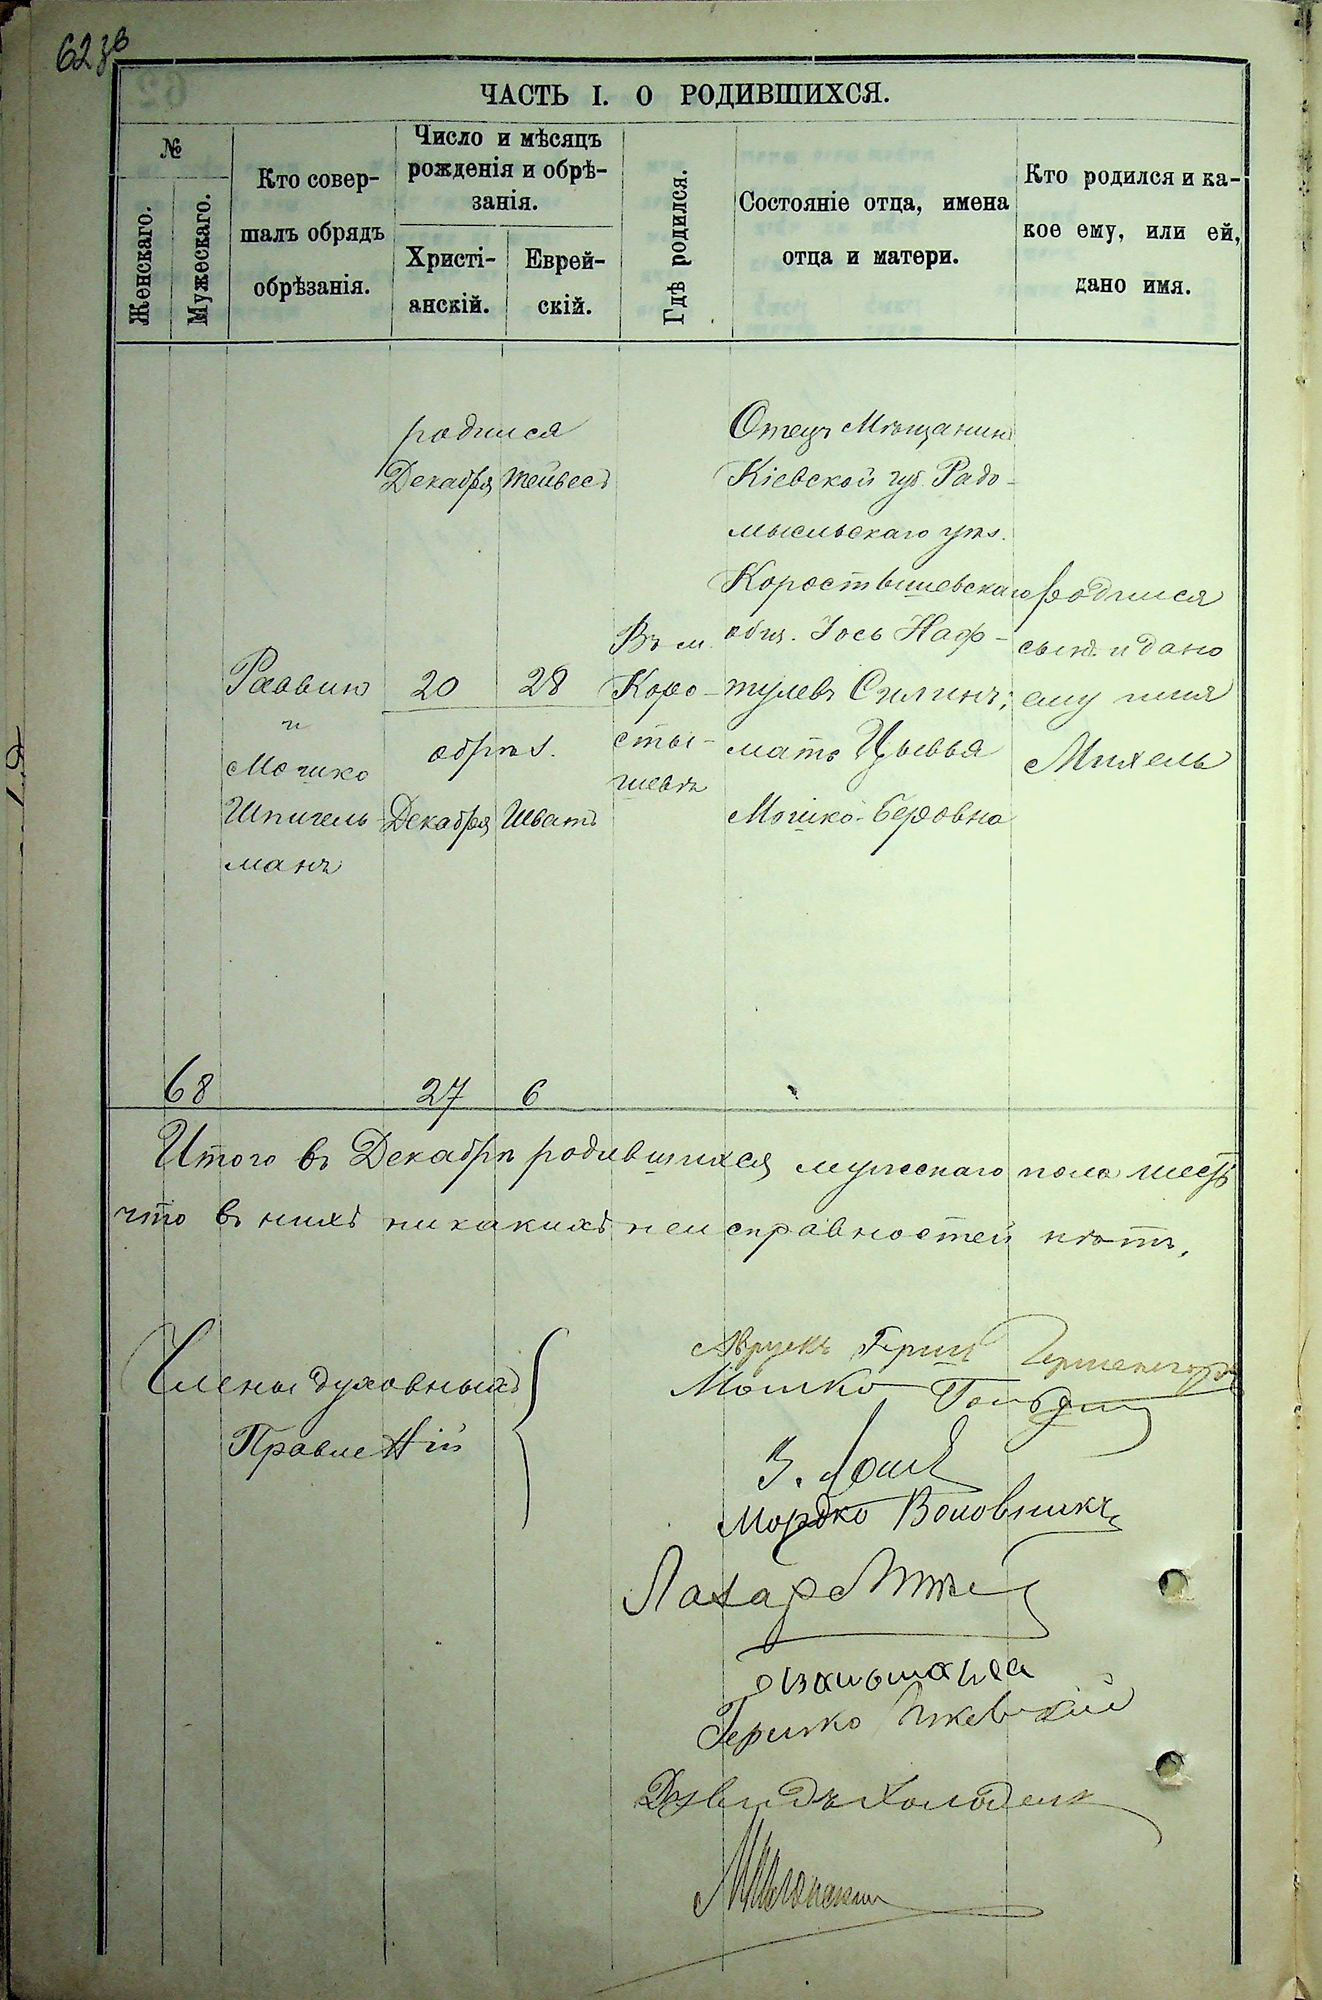 62
ЧАСТЬ I. О РОДИВШИХСЯ.
№
Женскаго.
Мужескаго.
Кто совер-
шалъ обрядъ
обрѣзанія.
Число и мѣсяцъ
рожденія и обрѣ-
занія.
Христі-
анскій.
Еврей-
скій.
Гдѣ родился.
Состояніе отца, имена
отца и матери.
Кто родился и ка-
кое ему, или ей,
дано имя.
68
Раввин
и
Мошко
Шпигель
манъ
родился
Декабря
20
обрѣз.
Декабря
27
Тейвесъ
28
Шватъ
6
Въ м.
Коро-
сты-
шевѣ
Отецъ Мѣщанинъ
Кіевской губ. Радо-
мысльскаго уѣз.
Коростышевскаго
общ. Іось Наф-
тулевъ Силинъ;
мать Цывья
Мошко-Беровна
Родился
сынъ и дано
ему имя
Михель
Итого въ Декабрѣ родившихся мужескаго пола шесть
что въ нихъ никакихъ неисправностей нѣтъ,
Члены духовныхъ
Правленій
Аврумъ Герш
Мошко
Мордко Воловникъ
Лазар
Гершко
Давидъ Холоденк